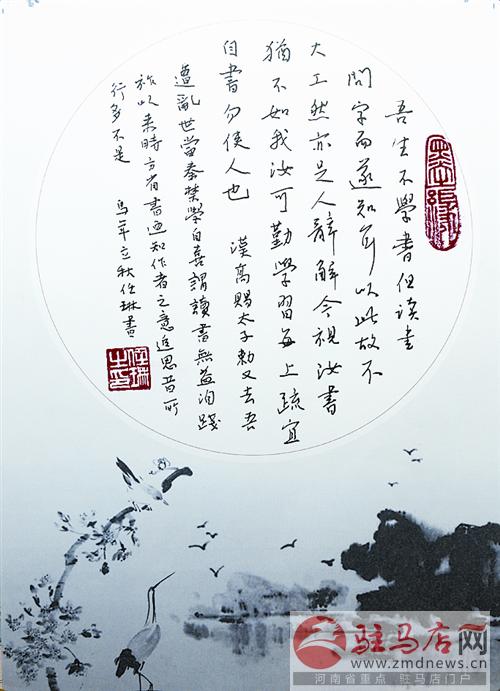 墨缘
吾生不學書但读書
問字而遂知耳以此故不
大工然亦足人辭解今視汝書
猶不如我汝可勤學習每上疏宜
自書勿使人也 漢高賜太子勅又云吾
遭亂世當秦禁學自喜謂讀書無益洎踐
祚以来時方省書迺知作者之意追思昔所
行多不是 馬年立秋任琳書
任琳之印
驻马店网
www.zmdnews.cn
河南省重点 驻马店门户